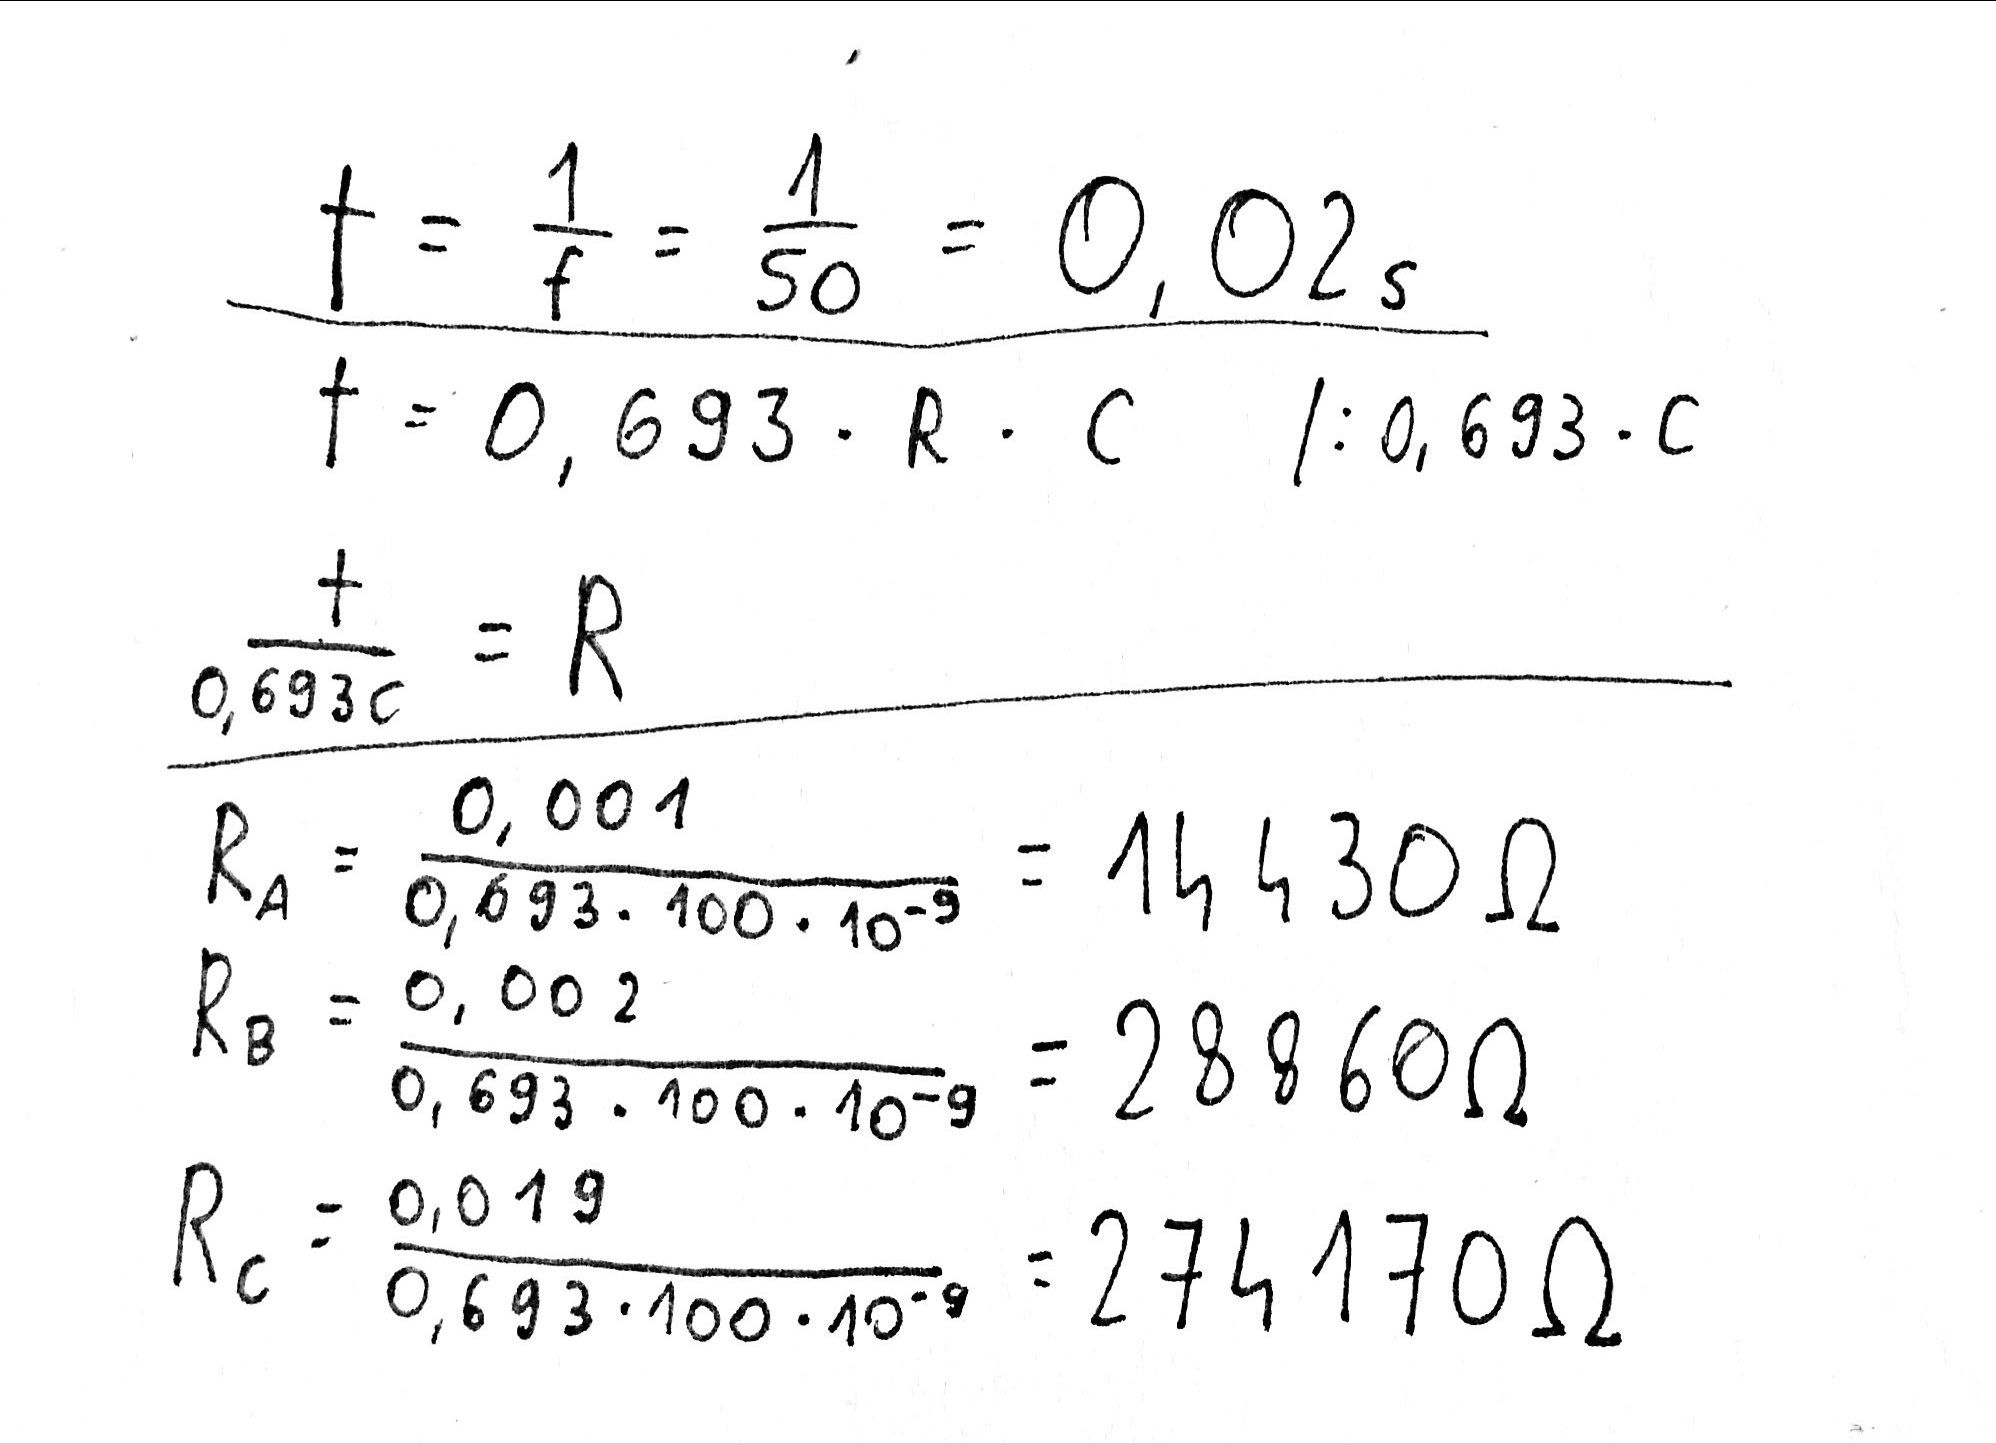 t = 1/f = 1/50 = 0,02s
t = 0,693 · R · C /: 0,693 · C
t/0,693C = R
R_A = 0,001/0,693 · 100 · 10⁻⁹ = 14430Ω
R_B = 0,002/0,693 · 100 · 10⁻⁹ = 28860Ω
R_C = 0,019/0,693 · 100 · 10⁻⁹ = 274170Ω